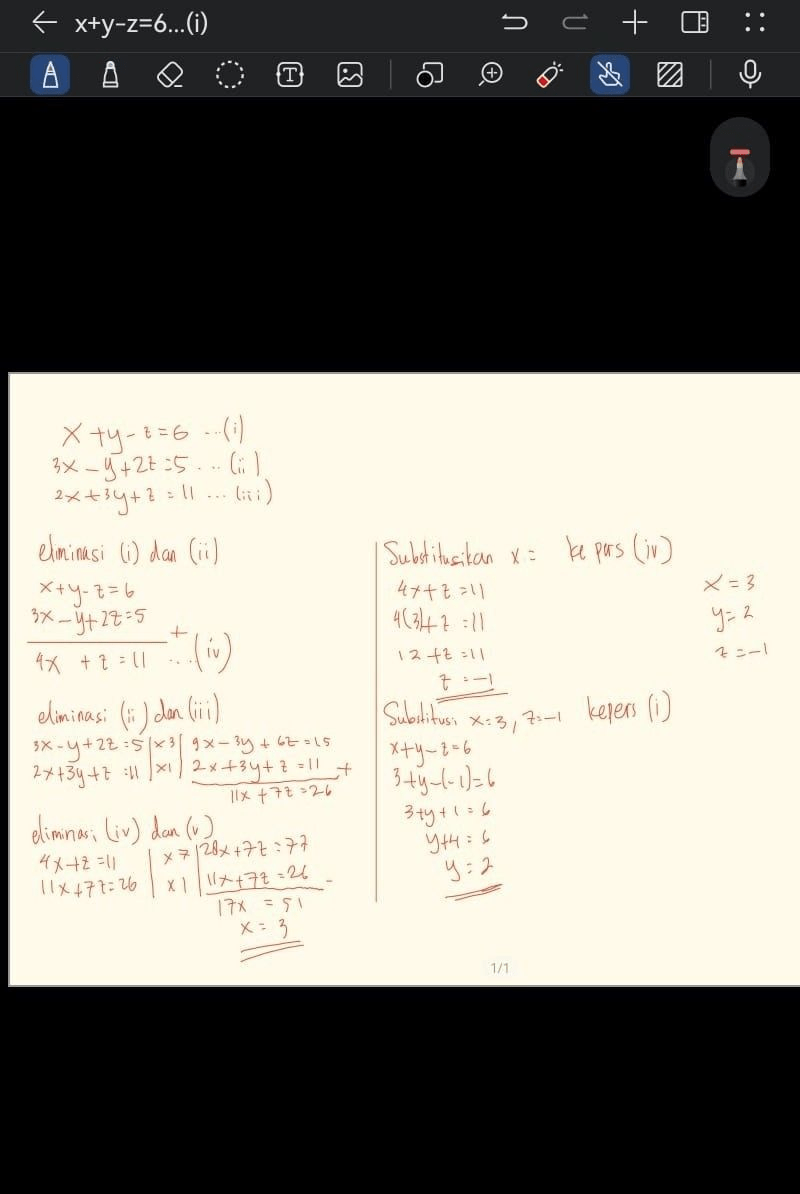 x+y-z=6...(i)
x+y-z=6 ...(i)
3x-y+2z=5 ... (ii)
2x+3y+z=11 ... (iii)
eliminasi (i) dan (ii)
x+y-z=6
3x-y+2z=5
+
4x +z=11 ...(iv)
eliminasi (ii) dan (iii)
3x-y+2z=5 |x3| 9x-3y+6z=15
2x+3y+z=11 |x1| 2x+3y+z=11 +
11x+7z=26
eliminasi (iv) dan (v)
4x+z=11 |x7| 28x+7z=77
11x+7z=26 |x1| 11x+7z=26 -
17x =51
x=3
Substitusikan x= ke pers (iv)
4x+z=11
4(3)+z=11
12+z=11
z=-1
Substitusi x=3, z=-1 kepers (i)
x+y-z=6
3+y-(-1)=6
3+y+1=6
y+4=6
y=2
x=3
y=2
z=-1
1/1